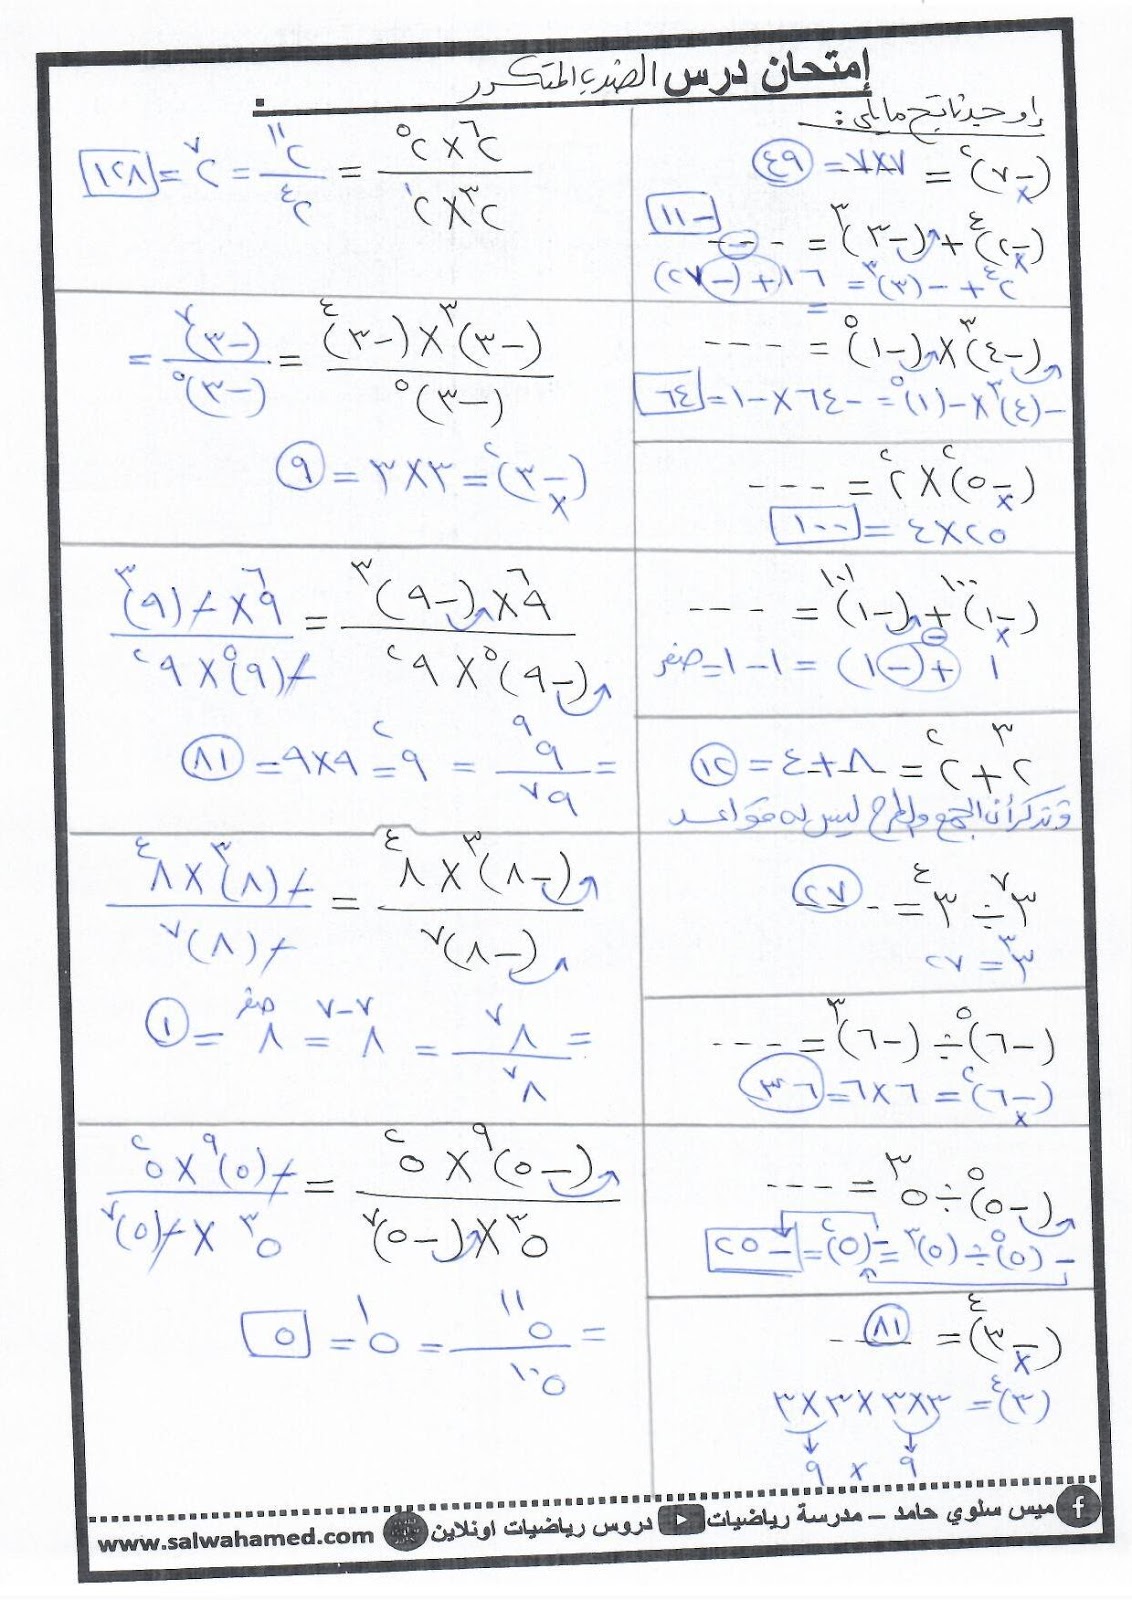 إمتحان درس الضرب المتكرر
١) أوجد ناتج ما يلى :
(-٧)٢ = ٧×٧ = ٤٩
(-٢)٤ + (-٣)٣ = - - - -١١
٢٤ + -(٣)٣ = ١٦ + (-٢٧)
=
(-٤)٣ × (-١)٥ = - - - -
-(٤)٣ × -(١)٥ = -٦٤ × -١ = ٦٤
(-٥)٢ × ٢٢ = - - - -
٢٥ × ٤ = ١٠٠
(-١)١٠٠ + (-١)١٠١ = - - - -
١ + (-١) = ١ - ١ = صفر
٢٣ + ٢٢ = ٨ + ٤ = ١٢
وتذكر أن الجمع والطرح ليس له قواعد
٣٧ ÷ ٣٤ = ٢٧
٣٣ = ٢٧
(-٦)٥ ÷ (-٦)٣ = - - - -
(-٦)٢ = ٦×٦ = ٣٦
(-٥)٥ ÷ ٥٣ = - - - -
-(٥)٥ ÷ (٥)٣ = -(٥)٢ = -٢٥
(-٣)٤ = ٨١
(٣)٤ = ٣×٣×٣×٣
٩ × ٩
٢٦ × ٢٥ / ٢٣ × ٢١ = ٢١١ / ٢٤ = ٢٧ = ١٢٨
(-٣)٣ × (-٣)٤ / (-٣)٥ = (-٣)٧ / (-٣)٥ =
(-٣)٢ = ٣×٣ = ٩
٩٦ × (-٩)٣ / (-٩)٥ × ٩٢ = ٩٦ × -(٩)٣ / -(٩)٥ × ٩٢
= ٩٩ / ٩٧ = ٩٢ = ٩×٩ = ٨١
(-٨)٣ × ٨٤ / (-٨)٧ = -(٨)٣ × ٨٤ / -(٨)٧
= ٨٧ / ٨٧ = ٨٧-٧ = ٨صفر = ١
(-٥)٩ × ٥٢ / ٥٣ × (-٥)٧ = -(٥)٩ × ٥٢ / ٥٣ × -(٥)٧
= ٥١١ / ٥١٠ = ٥١ = ٥
ميس سلوي حامد – مدرسة رياضيات دروس رياضيات اونلاين www.salwahamed.com